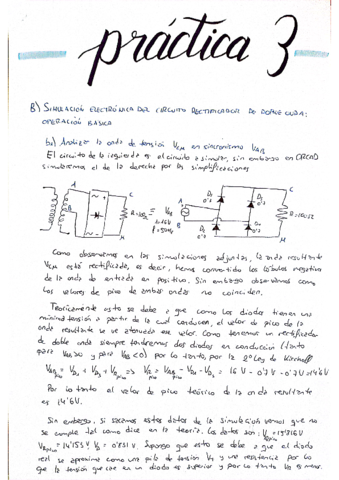 práctica 3
B) SIMULACIÓN ELECTRÓNICA DEL CIRCUITO RECTIFICADOR DE DOBLE ONDA:
OPERACIÓN BÁSICA
b1) Analizar la onda de tensión VCM en sincronismo VAB
El circuito de la izquierda es el circuito a simular, sin embargo en ORCAD
simularemos el de la derecha por las simplificaciones
Como observamos en las simulaciones adjuntas, la onda resultante
VCM está rectificada, es decir, hemos convertido los lóbulos negativos
de la onda de entrada en positivo. Sin embargo observamos como
los valores de pico de ambas ondas no coinciden.
Teóricamente esto se debe a que como los diodos tienen una
tensión a partir de la cual conducen, el valor de pico de la
onda resultante se ve atenuado ese valor. Como tenemos un rectificador
de doble onda siempre tendremos dos diodos en conducción (tanto
para VAB>0 y para VAB<0) por lo tanto, por la 2ª Ley de Kirchhoff
= 16 V - 0'7 V - 0'7 V = 14'6 V
Por lo tanto el valor de pico teórico de la onda resultante
es 14'6V.
Sin embargo, si sacamos estos datos de la simulación vemos que no
se cumple tal como dice en la teoría. Los datos son:
Supongo que esto se debe a que el diodo
real se aproxima como una pila de tensión y una resistencia por lo
que la tensión que cae en un diodo es superior y por lo tanto